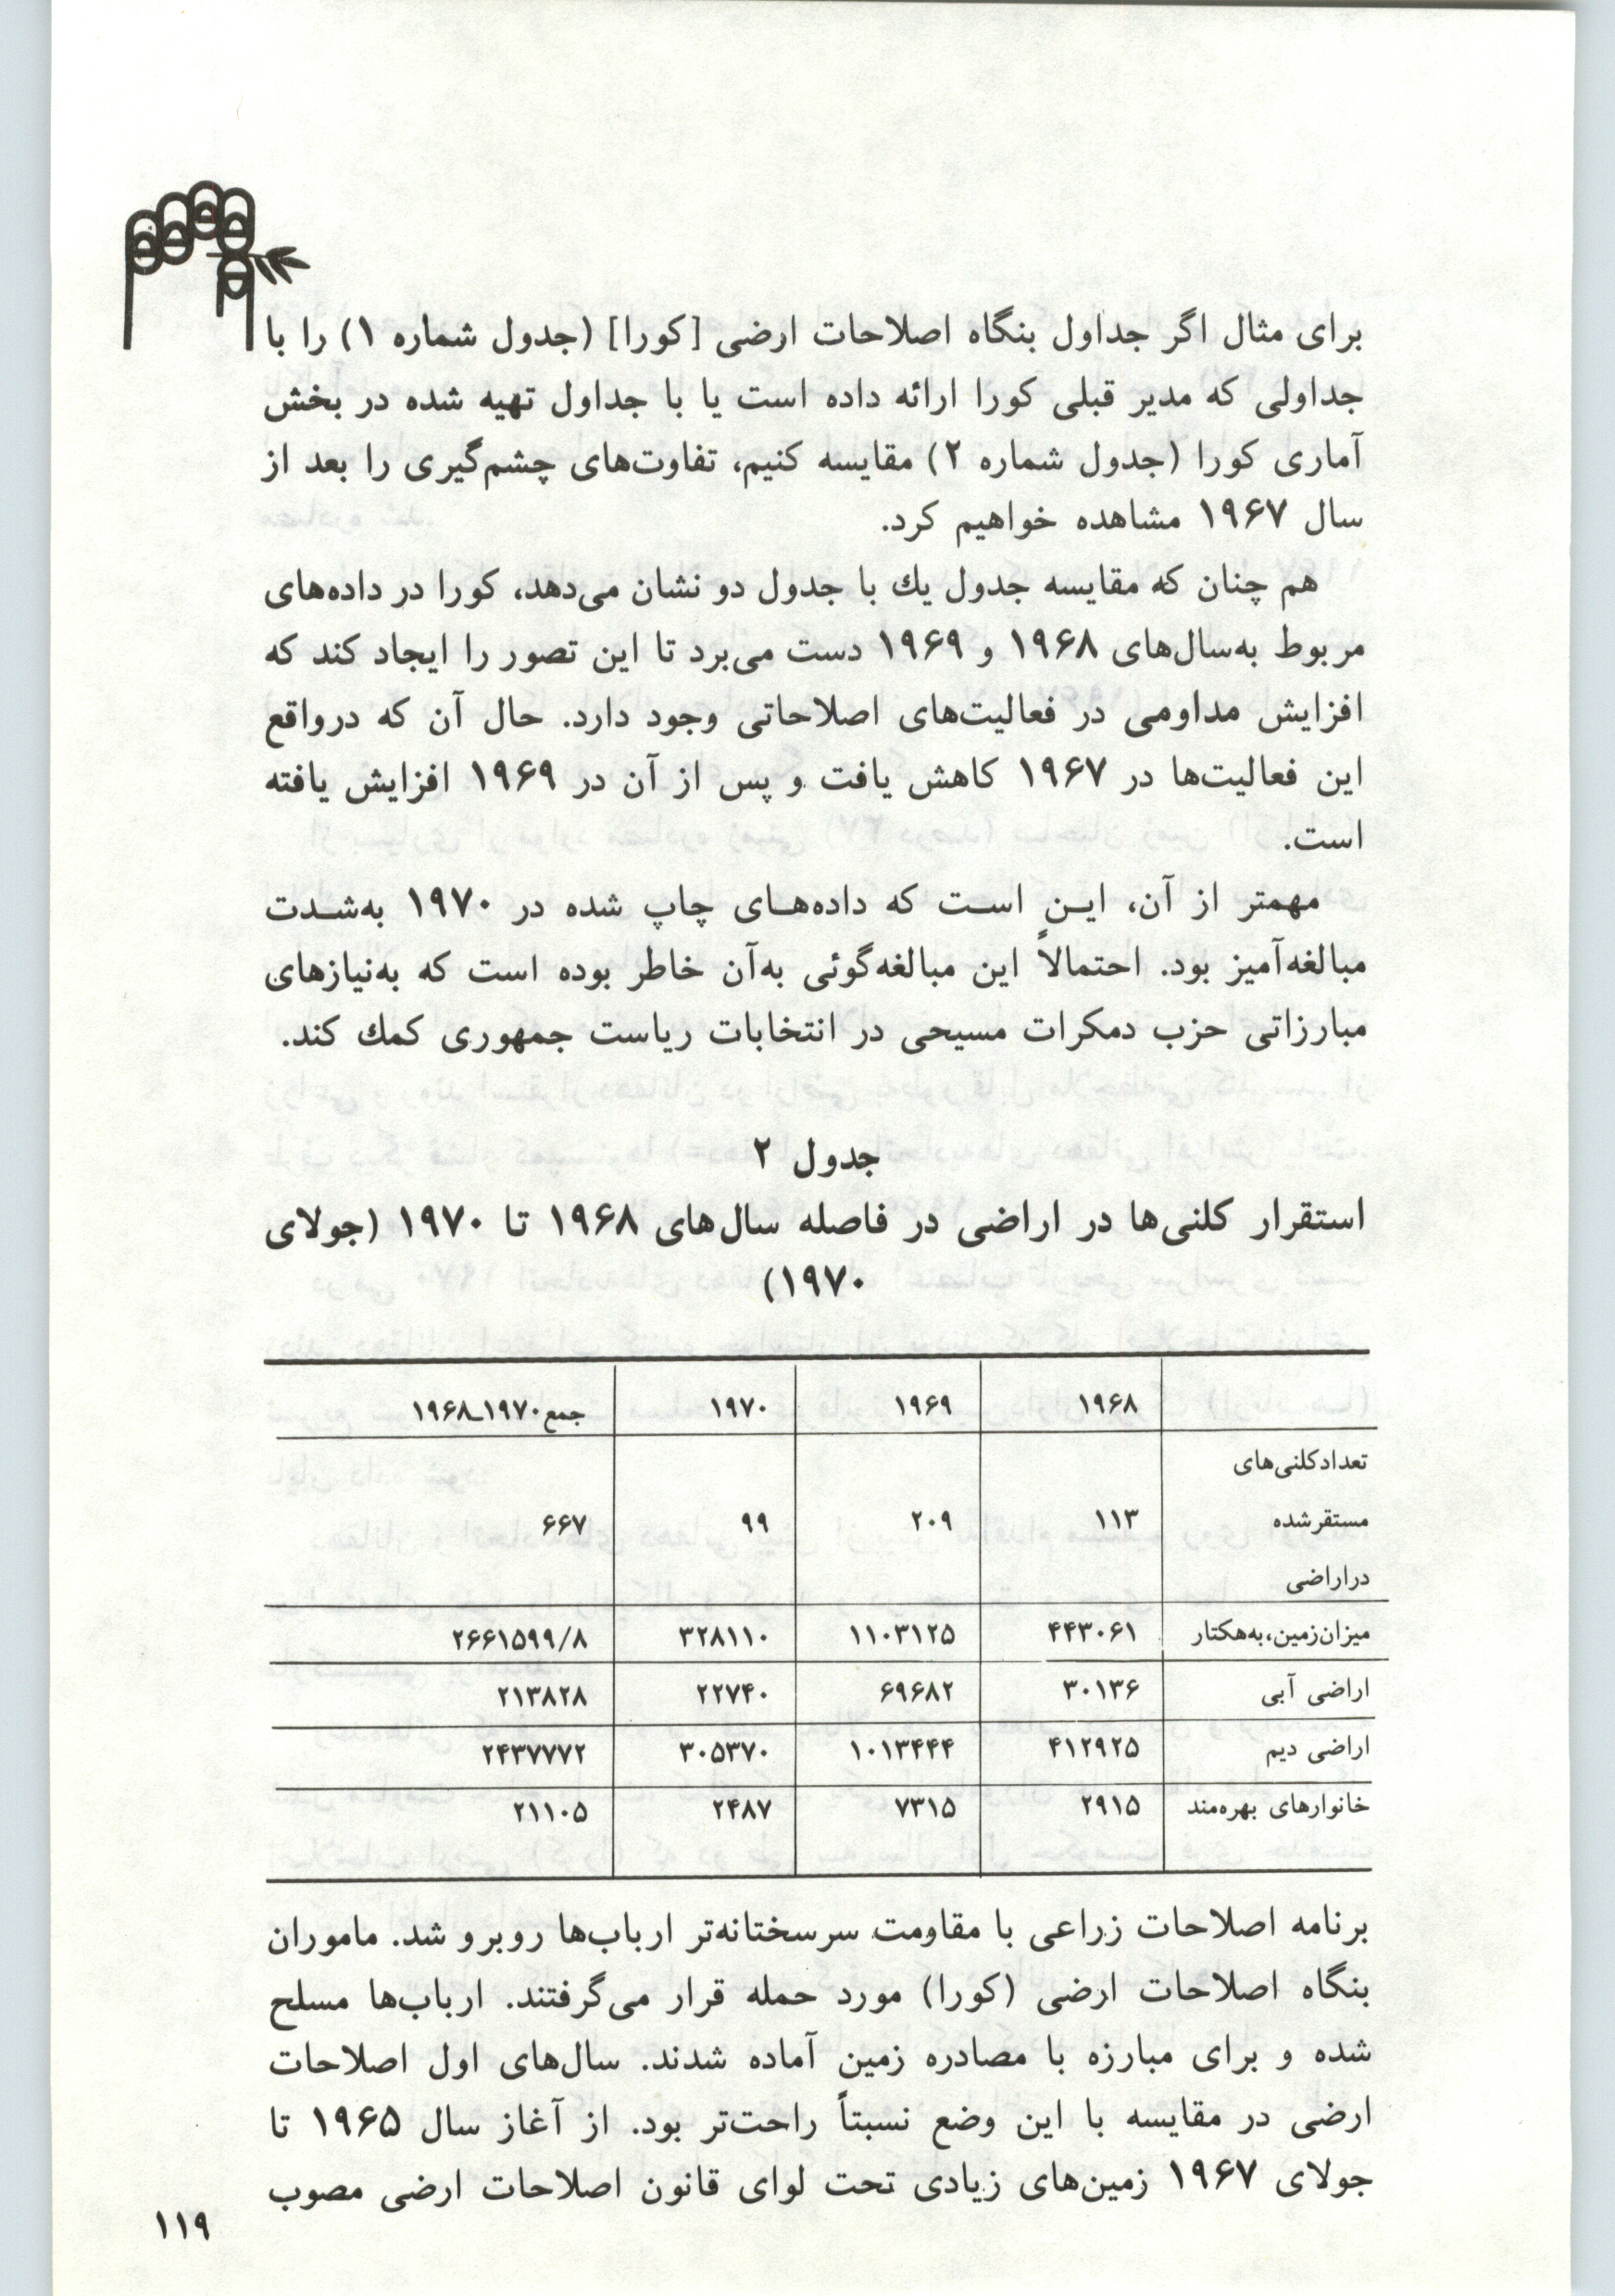 برای مثال اگر جداول بنگاه اصلاحات ارضی [کورا] (جدول شماره ۱) را با
جداولی که مدیر قبلی کورا ارائه داده است یا با جداول تهیه شده در بخش
آماری کورا (جدول شماره ۲) مقایسه کنیم، تفاوت‌های چشم‌گیری را بعد از
سال ۱۹۶۷ مشاهده خواهیم کرد.
هم چنان که مقایسه جدول یك با جدول دو نشان می‌دهد، کورا در داده‌های
مربوط به‌سال‌های ۱۹۶۸ و ۱۹۶۹ دست می‌برد تا این تصور را ایجاد کند که
افزایش مداومی در فعالیت‌های اصلاحاتی وجود دارد. حال آن که درواقع
این فعالیت‌ها در ۱۹۶۷ کاهش یافت و پس از آن در ۱۹۶۹ افزایش یافته
است.
مهمتر از آن، ایـن اسـت که داده‌هـای چاپ شده در ۱۹۷۰ به‌شـدت
مبالغه‌آمیز بود. احتمالاً این مبالغه‌گوئی به‌آن خاطر بوده است که به‌نیازهای
مبارزاتی حزب دمکرات مسیحی در انتخابات ریاست جمهوری کمك کند.
جدول ۲
استقرار کلنی‌ها در اراضی در فاصله سال‌های ۱۹۶۸ تا ۱۹۷۰ (جولای
۱۹۷۰)
۱۹۶۸ ۱۹۶۹ ۱۹۷۰ جمع ۱۹۷۰ـ۱۹۶۸
تعداد کلنی‌های
مستقر شده ۱۱۳ ۲۰۹ ۹۹ ۶۶۷
در اراضی
میزان زمین، به‌هکتار ۴۴۳۰۶۱ ۱۱۰۳۱۲۵ ۳۲۸۱۱۰ ۲۶۶۱۵۹۹/۸
اراضی آبی ۳۰۱۳۶ ۶۹۶۸۲ ۲۲۷۴۰ ۲۱۳۸۲۸
اراضی دیم ۴۱۲۹۲۵ ۱۰۱۳۴۴۴ ۳۰۵۳۷۰ ۲۴۳۷۷۷۲
خانوارهای بهره‌مند ۲۹۱۵ ۷۳۱۵ ۲۴۸۷ ۲۱۱۰۵
برنامه اصلاحات زراعی با مقاومت سرسختانه‌تر ارباب‌ها روبرو شد. ماموران
بنگاه اصلاحات ارضی (کورا) مورد حمله قرار می‌گرفتند. ارباب‌ها مسلح
شده و برای مبارزه با مصادره زمین آماده شدند. سال‌های اول اصلاحات
ارضی در مقایسه با این وضع نسبتاً راحت‌تر بود. از آغاز سال ۱۹۶۵ تا
جولای ۱۹۶۷ زمین‌های زیادی تحت لوای قانون اصلاحات ارضی مصوب
۱۱۹